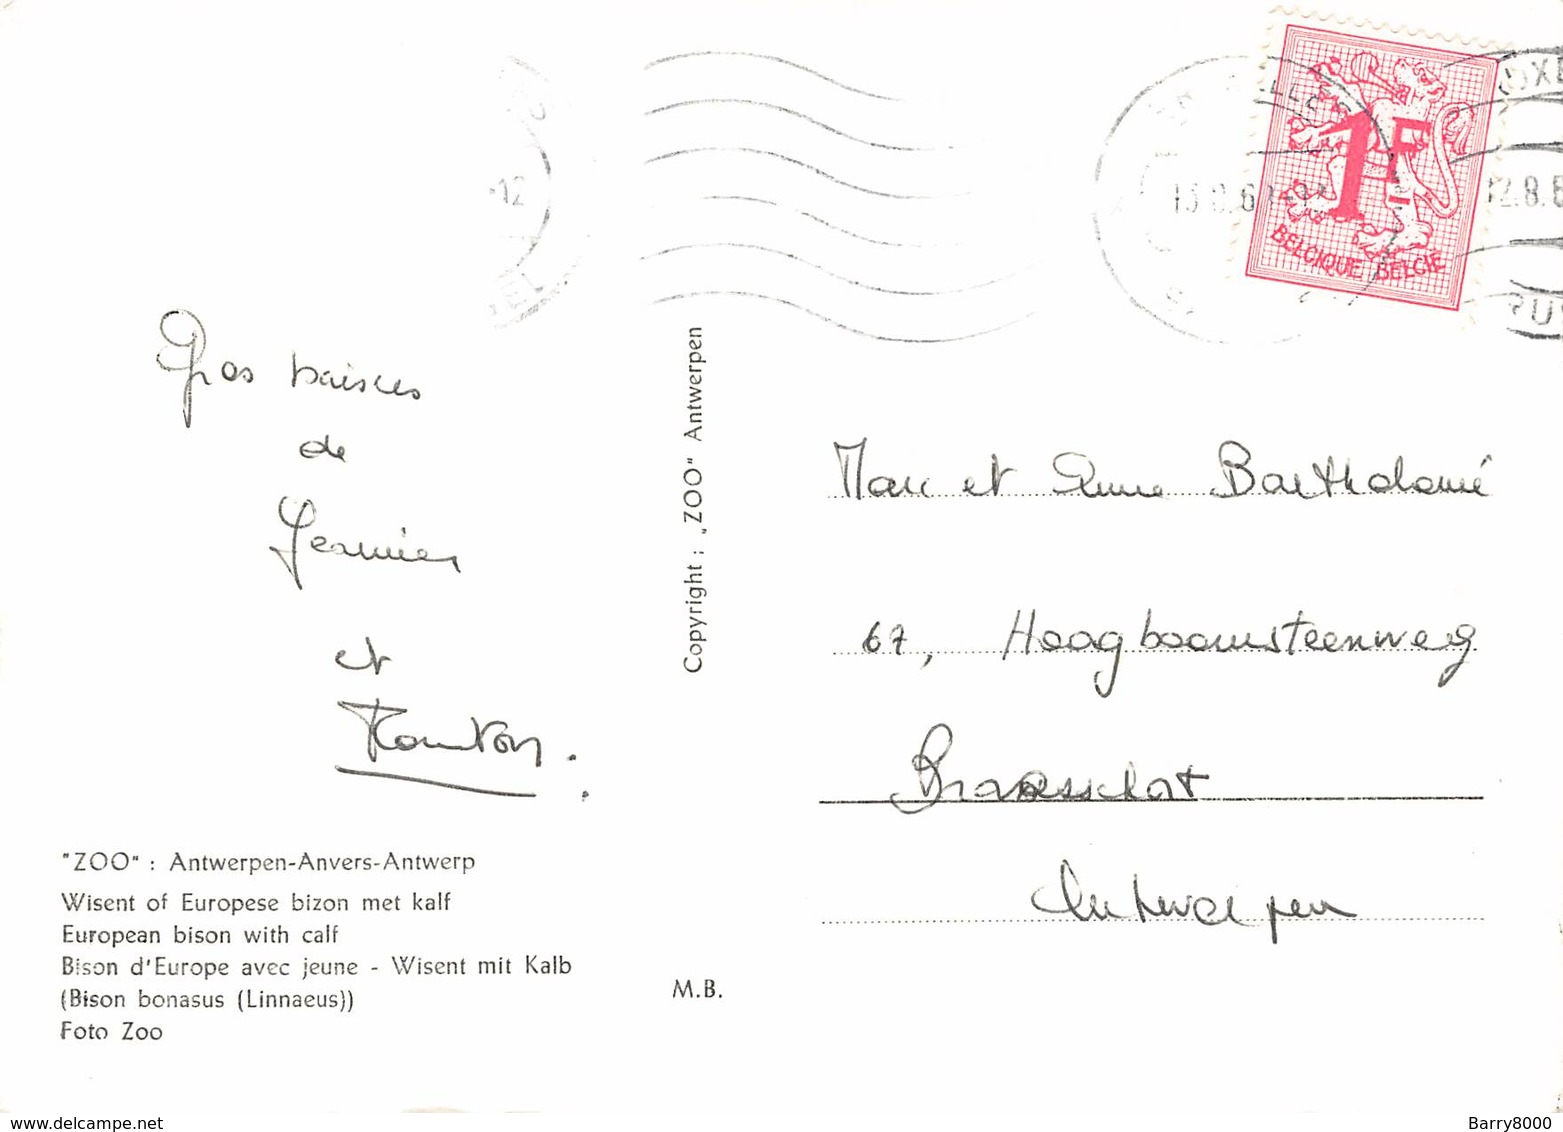 1F
BELGIQUE BELGIË
12
Gros baisers
de
et
Copyright : „ZOO" Antwerpen
Marc et Anne Bartholomé
67, Hoogboomsteenweg
Braesschat
Antwerpen
"ZOO" : Antwerpen-Anvers-Antwerp
Wisent of Europese bizon met kalf
European bison with calf
Bison d'Europe avec jeune - Wisent mit Kalb
(Bison bonasus (Linnaeus))
Foto Zoo
M.B.
www.delcampe.net
Barry8000